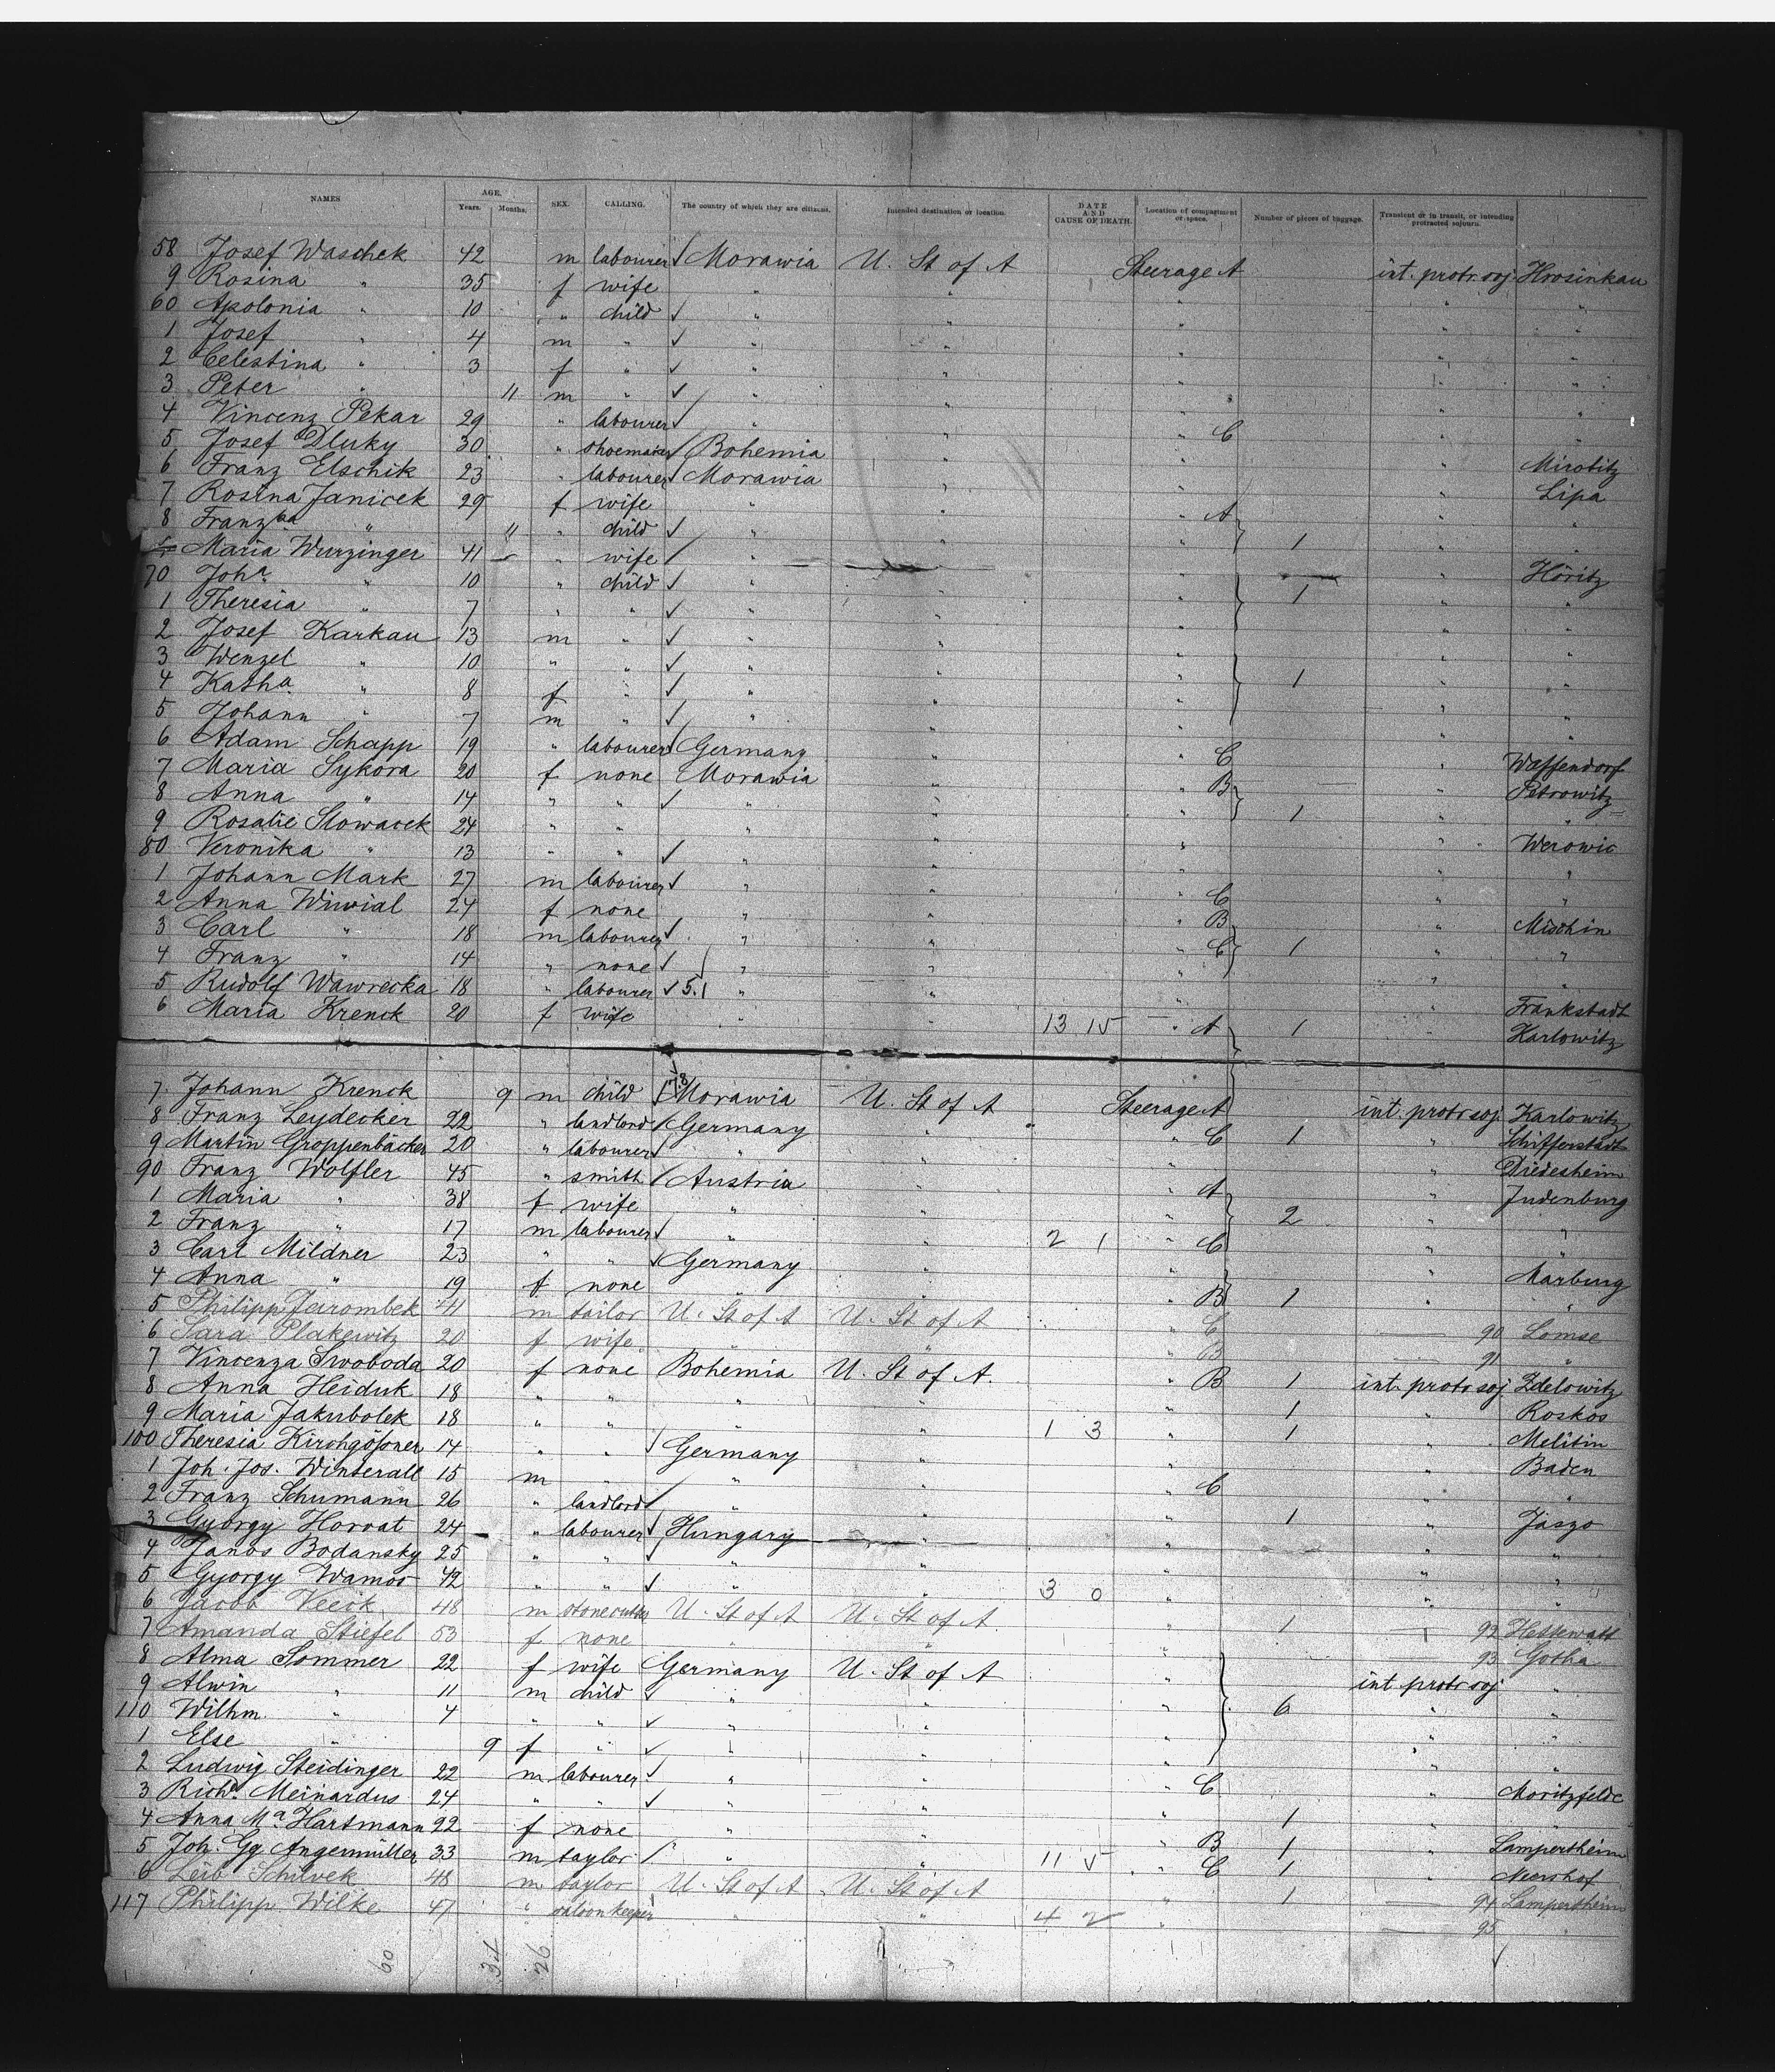 NAMES AGE. Years. Months. SEX. CALLING. The country of which they are citizens. Intended destination or location. DATE AND CAUSE OF DEATH. Location of compartment or space. Number of pieces of luggage. Transient or in transit, or intending protracted sojourn.
58 Josef Waschek 42 m labourer √ Morawia U. St of A Steerage A int. protr. soj. Hrosinkau
9 Rosina " 35 f wife " " " " "
60 Apolonia " 10 " child √ " " " " "
1 Josef " 4 m " √ " " " " "
2 Celestina " 3 f " √ " " " " "
3 Peter " 11 m " √ " " " " "
4 Vincenz Pekar 29 " labourer √ " " " C " "
5 Josef Dluky 30 " shoemaker √ Bohemia " " " Mirotitz
6 Franz Elschik 23 " labourer √ Morawia " " " Lipa
7 Rosina Janicek 29 f wife " " " A " "
8 Franzka " 11 " child √ " " " 1 " "
Maria Wurzinger 41 " wife √ " " " " Höritz
70 Joha " 10 " child √ " " " 1 " "
1 Theresia " 7 " " √ " " " " "
2 Josef Karkau 13 m " √ " " " " "
3 Wenzel " 10 " " √ " " " 1 " "
4 Katha " 8 f " √ " " " " "
5 Johann " 7 m " √ " " " " "
6 Adam Schapp 19 " labourer √ Germany " " C " Waffendorf
7 Maria Sykora 20 f none Morawia " " B " Petrowitz
8 Anna " 14 " " √ " " " 1 " "
9 Rosalie Slowacek 24 " " " " " " Werowic
80 Veronika " 13 " " √ " " " " "
1 Johann Mark 27 m labourer √ " " " C " "
2 Anna Wiwial 24 f none " " " B " Mischin
3 Carl " 18 m labourer √ " " " C 1 " "
4 Franz " 14 " none √ " " " " "
5 Rudolf Wawrecka 18 " labourer √ 5.1 " " " " Frankstadt
6 Maria Krenek 20 f wife " " 13 15 " A 1 " Karlowitz
7 Johann Krenek 9 m child √ 78 Morawia U. St of A Steerage A int. protr. soj. Karlowitz
8 Franz Leydecker 22 " landlord √ Germany " " C 1 " Schifferstadt
9 Martin Groppenbäcker 20 " labourer √ " " " " Diedesheim
90 Franz Wolfler 45 " smith √ Austria " " A " Judenburg
1 Maria " 38 f wife " " " 2 " "
2 Franz " 17 m labourer √ " " 2 1 " C " "
3 Carl Mildner 23 " " √ Germany " " " Marburg
4 Anna " 19 f none " " " B 1 " "
5 Philipp Jarombek 41 m tailor U. St of A U. St of A " C 90 Lomse
6 Sara Plakewitz 20 f wife " " " B 91 "
7 Vincenza Swoboda 20 f none Bohemia U. St of A. " B 1 int. protr soj Zdelowitz
8 Anna Heiduk 18 " " " " " 1 " Roskos
9 Maria Jakubolek 18 " " " " 1 3 " 1 " Melitin
100 Theresia Kirchgößner 14 " " √ Germany " " " Baden
1 Joh. Jos. Winterall 15 m " √ " " " C " "
2 Franz Schumann 26 " landlord √ " " " 1 " Jaszo
3 György Horvat 24 " labourer √ Hungary " " " "
4 Janos Bodansky 25 " " √ " " " " "
5 György Wamos 42 " " √ " " 3 0 " " "
6 Jacob Veeck 48 m stonecutter U. St of A U. St of A " 1 92 Hettewatt
7 Amanda Stiefel 53 f none " " " 93 Gotha
8 Alma Sommer 22 f wife Germany U. St of A " int protr soj "
9 Alwin " 11 m child √ " " " 6 " "
110 Wilhm. " 4 " " √ " " " " "
1 Else " 9 f " √ " " " " "
2 Ludwig Steidinger 22 m labourer √ " " " C " Moritzfelde
3 Richd. Meinardus 24 " " √ " " " 1 " "
4 Anna Ma Hartmann 22 f none " " " B 1 " Lampertheim
5 Joh. Gg. Angermüller 33 m taylor √ " " 11 5 " C 1 " Meershof
6 Leib Schilvek 48 m taylor U. St of A U. St of A " 1 94 Lampertheim
117 Philipp Wilke 47 " saloonkeeper " " 4 2 " 95 "
60 31 26